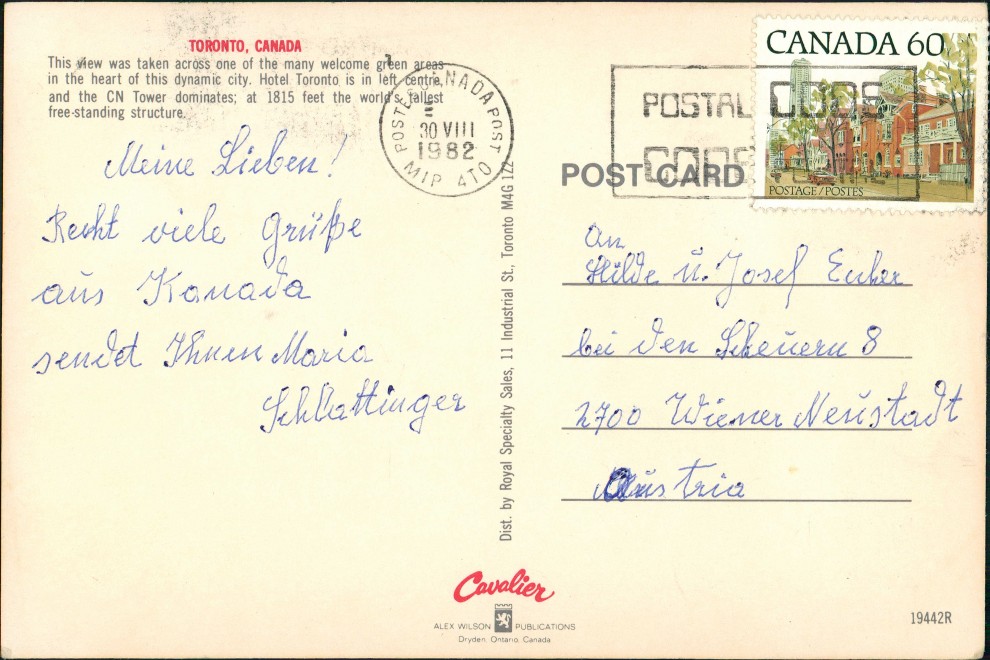 TORONTO, CANADA
This view was taken across one of the many welcome green areas
in the heart of this dynamic city. Hotel Toronto is in left centre,
and the CN Tower dominates; at 1815 feet the world's tallest
free-standing structure.
Meine Lieben!
Recht viele Grüße
aus Kanada
sendet Ihnen Maria
Schlattinger
POSTES CANADA POST
30 VIII
1982
M1P 4T0
Dist. by Royal Specialty Sales, 11 Industrial St., Toronto M4G 1Z2
CANADA 60
POSTAGE/POSTES
POSTAL CODES
CODES
POST CARD
An
Hilde u. Josef
bei den Scheuern 8
2700 Wiener Neustadt
Austria
Cavalier
ALEX WILSON PUBLICATIONS
Dryden, Ontario, Canada
19442R